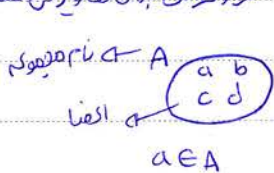 نام مجموعه ← A
a b
c d
اعضا
a ∈ A